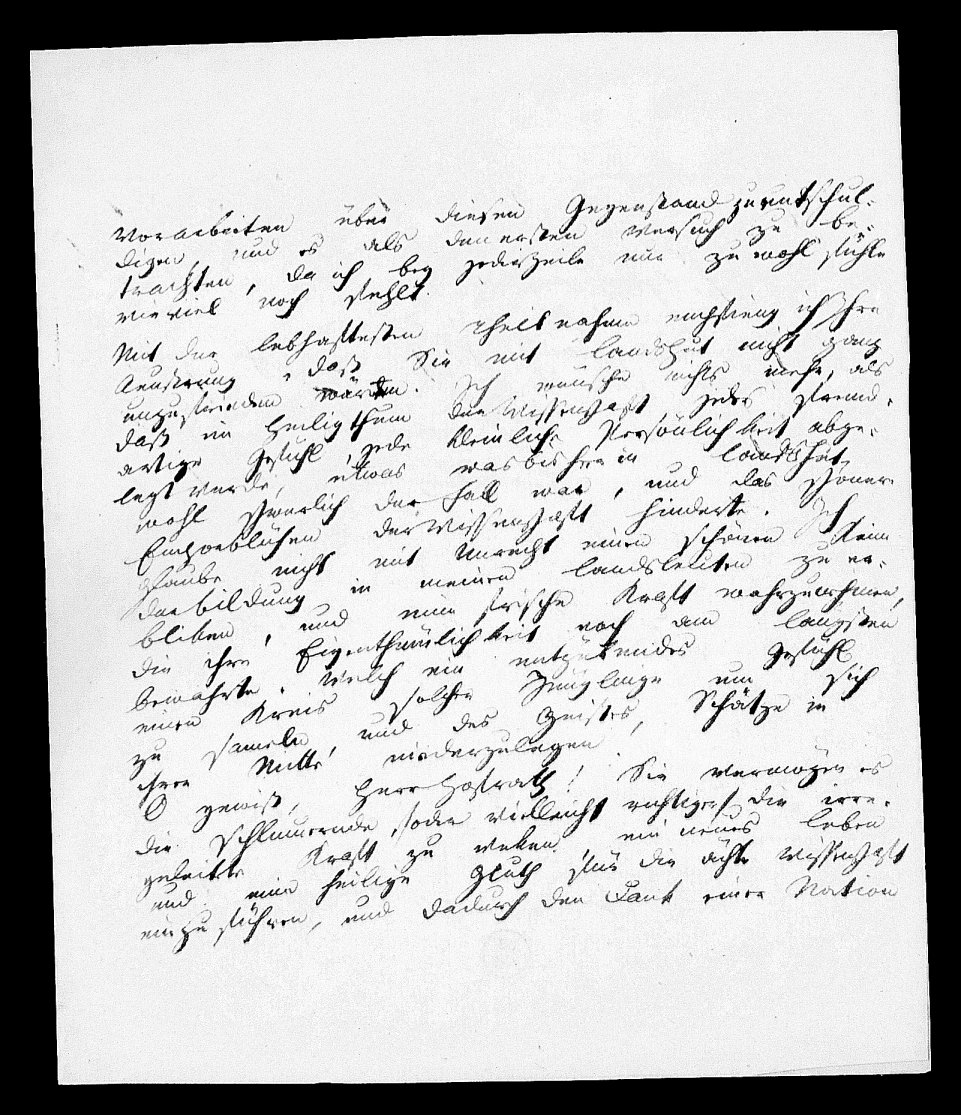 Vorarbeiten über diesen Gegenstand zu entschul-
digen, und es als den ersten Versuch zu be-
trachten, da ich bey jeder Zeile nur zu wohl fühle
wie viel noch fehlt.
Mit der lebhaftesten Theilnahme empfieng ich Ihre
Aeußerung, daß Sie mit Landshut nicht ganz
unzufrieden wären. Ich wünsche nichts mehr, als
daß im Heiligthum der Wissenschaft jedes fremd-
artige Gefühl, jede kleinliche Persönlichkeit abge-
legt werde, etwas was bisher in Landshut
wohl schwerlich der Fall war, und das schöner
Emporblühen der Wissenschaft hinderte. Ich
glaube nicht mit Unrecht einen schönen Keim
der Bildung in meinen Landsleuten zu er-
bliken, und eine frische Kraft wahrzunehmen,
die ihre Eigenthümlichkeit noch am längsten
bewahrte. Welch ein entzükendes Gefühl
einen Kreis solcher Jünglinge um sich
zu sameln, und des Geistes Schätze in
ihrer Mitte niederzulegen!
O gewiß, Herr Hofrath! Sie vermögen es
die schlumernde, (oder vielleicht richtiger) die irre-
geleitete Kraft zu weken, ein neues Leben
und eine heilige Gluth für die ächte Wissenschaft
einzuführen, und dadurch den Dank einer Nation